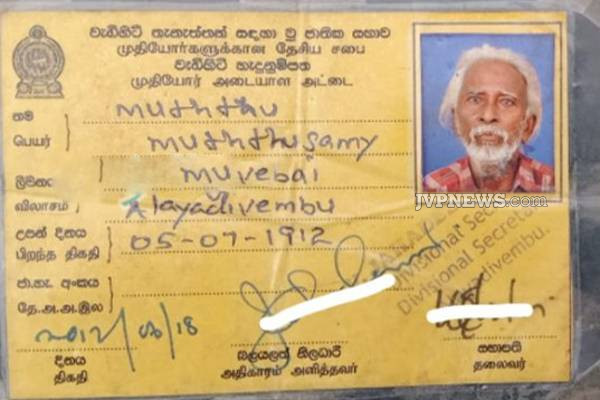 වැඩිහිටි තැනැත්තන් සඳහා වූ ජාතික සභාව
முதியோர்களுக்கான தேசிய சபை
වැඩිහිටි හැඳුනුම්පත
முதியோர் அடையாள அட்டை
නම
பெயர்
muththu
muththusamy
ලිපිනය
விலாசம்
muvebai
Alayadivembu
උපන් දිනය
பிறந்த திகதி
05-07-1912
ජා.හැ. අංකය
தே.அ.அ.இல
2012/06/18
දිනය
திகதி
බලයලත් නිලධාරී
அதிகாரம் அளித்தவர்
සභාපති
தலைவர்
JVPNEWS.com
Divisional Secre
Divisional Secreta